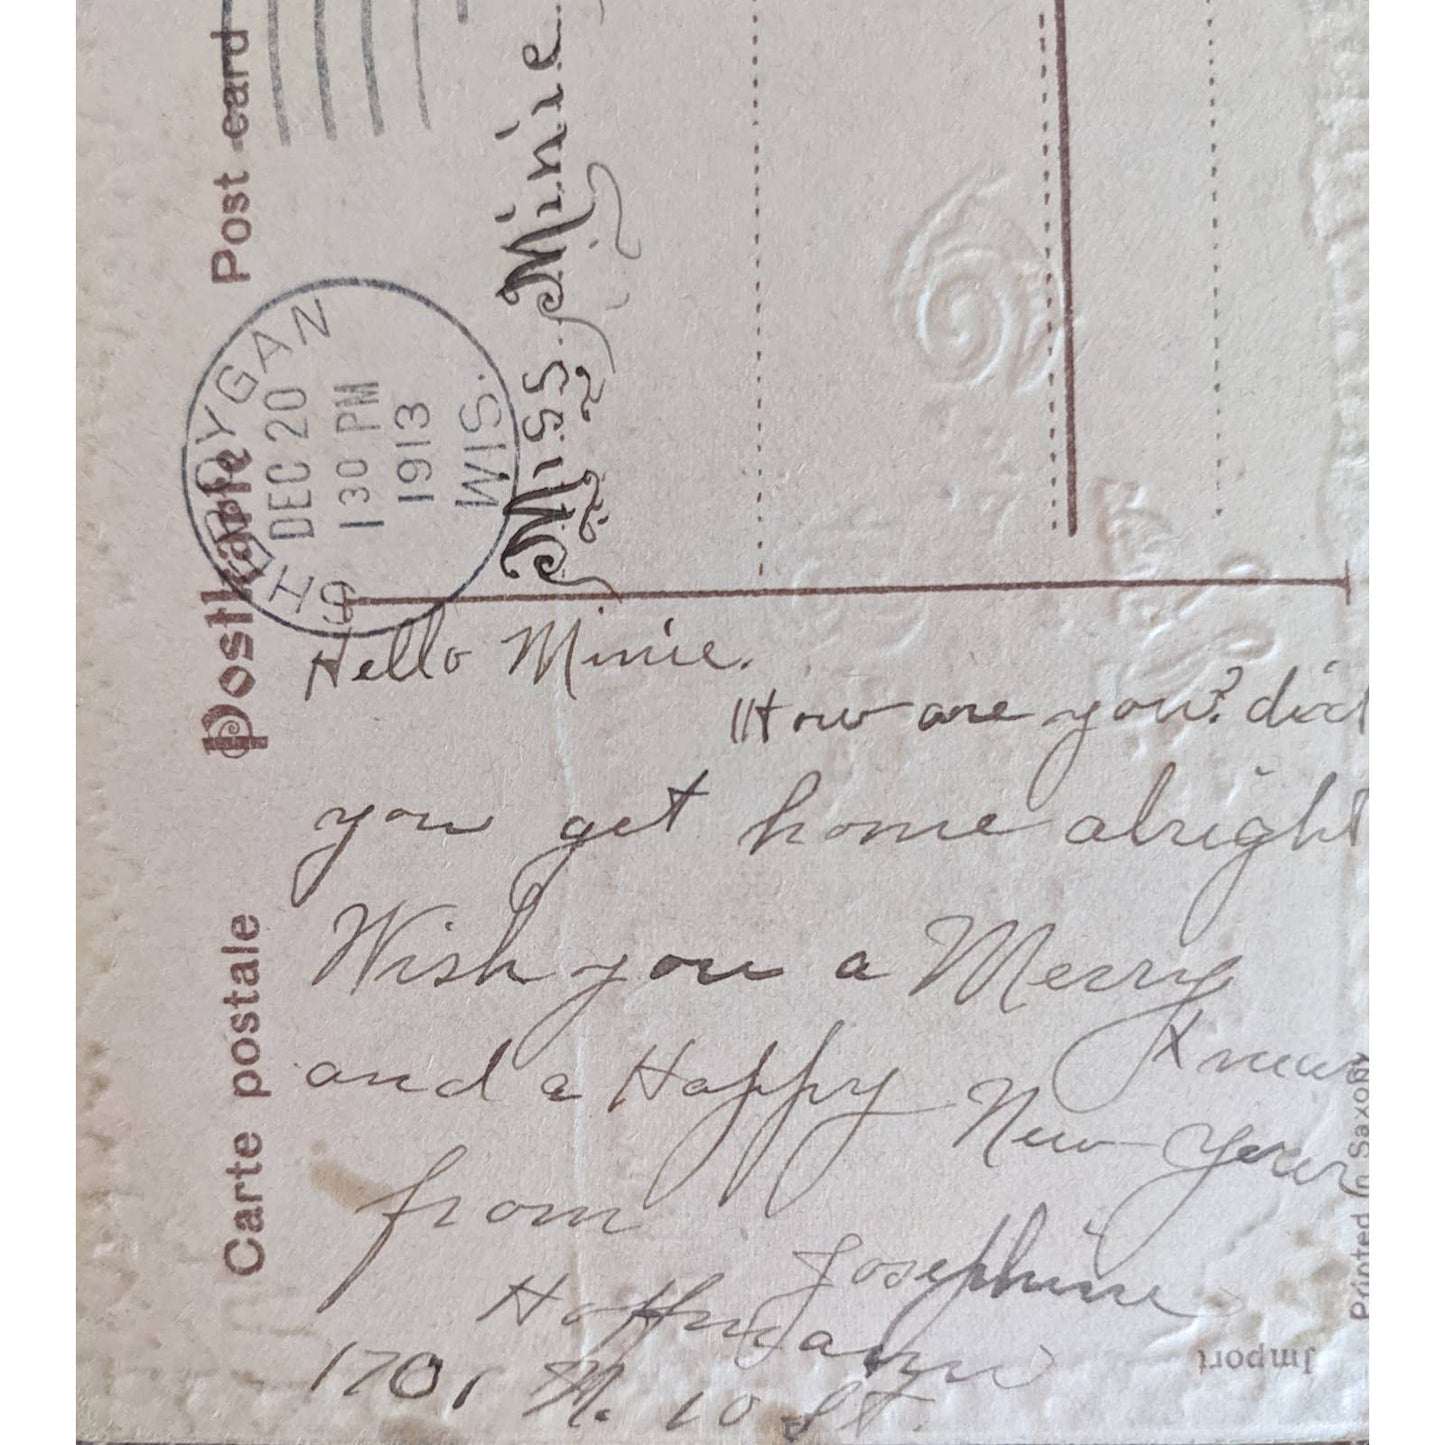 Post card
Postkarte
Carte postale
SHEBOYGAN
DEC 20
1 30 PM
1913
WIS.
Miss. Minie
Hello Minie.
How are you? did
you get home alright
Wish you a Merry
Xmas
and a Happy New Year
from
Josephine
Hoffmann
1701 N. 10 St.
Printed in Saxony
Import